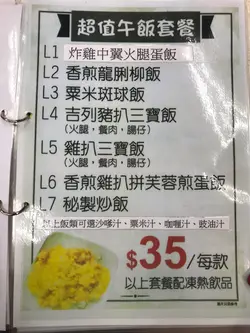 超值午飯套餐
L1 炸雞中翼火腿蛋飯
L2 香煎龍脷柳飯
L3 粟米斑球飯
L4 吉列豬扒三寶飯
(火腿，餐肉，腸仔)
L5 雞扒三寶飯
(火腿，餐肉，腸仔)
L6 香煎雞扒拼芙蓉煎蛋飯
L7 秘製炒飯
以上飯類可選沙嗲汁、粟米汁、咖喱汁、豉油汁
$35/每款
以上套餐配凍熱飲品